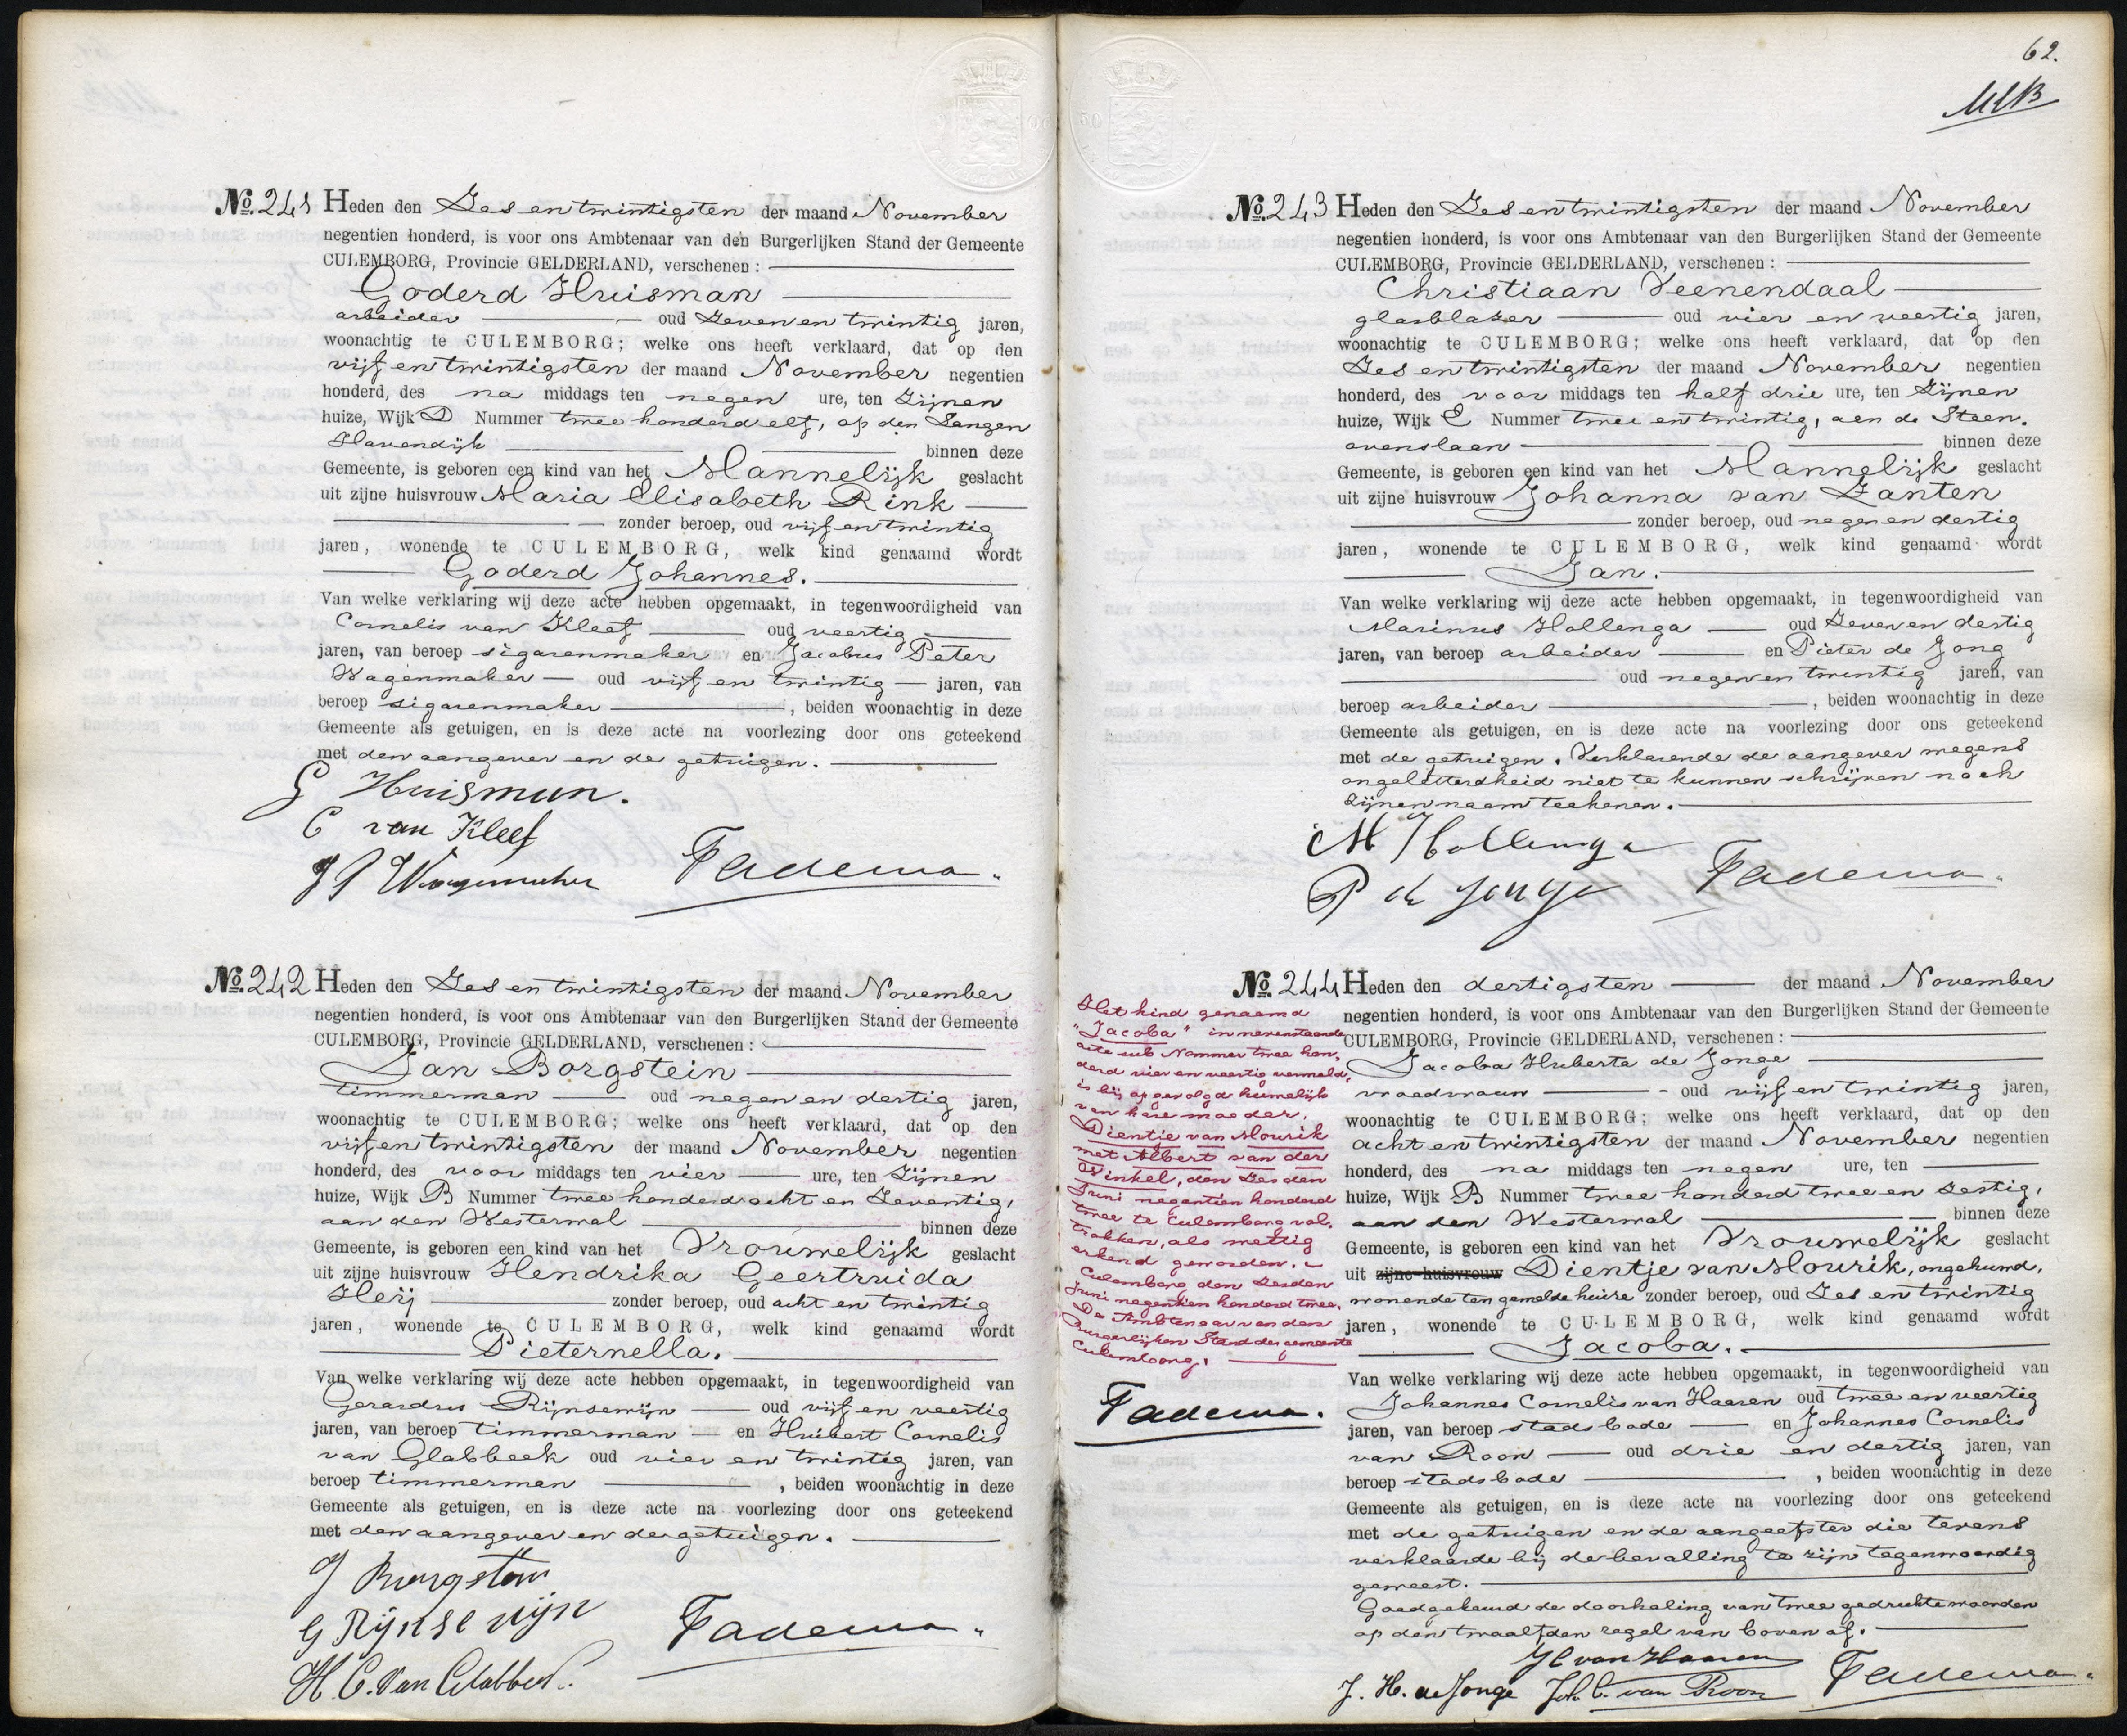 No. 241 Heden den Zes en twintigsten der maand November
negentien honderd, is voor ons Ambtenaar van den Burgerlijken Stand der Gemeente
CULEMBORG, Provincie GELDERLAND, verschenen:
Goderd Huisman
arbeider oud Zeven en twintig jaren,
woonachtig te CULEMBORG; welke ons heeft verklaard, dat op den
vijf en twintigsten der maand November negentien
honderd, des na middags ten negen ure, ten Zijnen
huize, Wijk D Nummer twee honderd elf, op den Langen
Havendijk binnen deze
Gemeente, is geboren een kind van het Mannelijk geslacht
uit zijne huisvrouw Maria Elisabeth Rink
zonder beroep, oud vijf en twintig
jaren, wonende te CULEMBORG, welk kind genaamd wordt
Goderd Johannes.
Van welke verklaring wij deze acte hebben opgemaakt, in tegenwoordigheid van
Cornelis van Kleef oud veertig
jaren, van beroep sigarenmaker en Jacobus Peter
Wagenmaker oud vijf en twintig jaren, van
beroep sigarenmaker, beiden woonachtig in deze
Gemeente als getuigen, en is deze acte na voorlezing door ons geteekend
met den aangever en de getuigen.
G Huisman.
C van Kleef
J P Wagenmaker Fadema.
No. 242 Heden den Zes en twintigsten der maand November
negentien honderd, is voor ons Ambtenaar van den Burgerlijken Stand der Gemeente
CULEMBORG, Provincie GELDERLAND, verschenen:
Jan Borgstein
timmerman oud negen en dertig jaren,
woonachtig te CULEMBORG; welke ons heeft verklaard, dat op den
vijf en twintigsten der maand November negentien
honderd, des voor middags ten vier ure, ten Zijnen
huize, Wijk B Nummer twee honderd acht en Zeventig,
aan den Westerwal binnen deze
Gemeente, is geboren een kind van het Vrouwelijk geslacht
uit zijne huisvrouw Hendrika Geertruida
Heij zonder beroep, oud acht en twintig
jaren, wonende te CULEMBORG, welk kind genaamd wordt
Pieternella.
Van welke verklaring wij deze acte hebben opgemaakt, in tegenwoordigheid van
Gerardus Rijnsewijn oud vijf en veertig
jaren, van beroep timmerman en Huibert Cornelis
van Glabbeek oud vier en twintig jaren, van
beroep timmerman, beiden woonachtig in deze
Gemeente als getuigen, en is deze acte na voorlezing door ons geteekend
met den aangever en de getuigen.
J Borgstein
G Rijnsewijn Fadema.
H. C. van Glabbeek.
62.
No. 243 Heden den Zes en twintigsten der maand November
negentien honderd, is voor ons Ambtenaar van den Burgerlijken Stand der Gemeente
CULEMBORG, Provincie GELDERLAND, verschenen:
Christiaan Veenendaal
glasblazer oud vier en veertig jaren,
woonachtig te CULEMBORG; welke ons heeft verklaard, dat op den
Zes en twintigsten der maand November negentien
honderd, des voor middags ten half drie ure, ten Zijnen
huize, Wijk E Nummer twee en twintig, aan de Steen,
ovenslaan binnen deze
Gemeente, is geboren een kind van het Mannelijk geslacht
uit zijne huisvrouw Johanna van Zanten
zonder beroep, oud negen en dertig
jaren, wonende te CULEMBORG, welk kind genaamd wordt
Jan.
Van welke verklaring wij deze acte hebben opgemaakt, in tegenwoordigheid van
Marinus Hollenga oud Zeven en dertig
jaren, van beroep arbeider en Pieter de Jong
oud negen en twintig jaren, van
beroep arbeider, beiden woonachtig in deze
Gemeente als getuigen, en is deze acte na voorlezing door ons geteekend
met de getuigen. Verklarende de aangever wegens
ongeletterdheid niet te kunnen schrijven noch
zijnen naam teekenen.
M Hollenga
P de Jonge Fadema.
No. 244 Heden den dertigsten der maand November
negentien honderd, is voor ons Ambtenaar van den Burgerlijken Stand der Gemeente
CULEMBORG, Provincie GELDERLAND, verschenen:
Jacoba Huberta de Jonge
vroedvrouw oud vijf en twintig jaren,
woonachtig te CULEMBORG; welke ons heeft verklaard, dat op den
acht en twintigsten der maand November negentien
honderd, des na middags ten negen ure, ten
huize, Wijk B Nummer twee honderd twee en Zestig,
aan den Westerwal binnen deze
Gemeente, is geboren een kind van het Vrouwelijk geslacht
uit zijne huisvrouw Dientje van Mourik, ongehuwd,
wonende ten gemelde huize zonder beroep, oud Zes en twintig
jaren, wonende te CULEMBORG, welk kind genaamd wordt
Jacoba.
Van welke verklaring wij deze acte hebben opgemaakt, in tegenwoordigheid van
Johannes Cornelis van Haaren oud twee en veertig
jaren, van beroep stadsbode en Johannes Cornelis
van Roon oud drie en dertig jaren, van
beroep stadsbode, beiden woonachtig in deze
Gemeente als getuigen, en is deze acte na voorlezing door ons geteekend
met de getuigen en de aangeefster die tevens
verklaarde bij de bevalling te zijn tegenwoordig
geweest.
Goedgekeurd de doorhaling van twee gedrukte woorden
op den twaalfden regel van boven af.
JC van Haaren
J. H. de Jonge Joh. C. van Roon Fadema.
Het kind genaamd
"Jacoba" in nevenstaande
acte sub Nummer twee hon,
derd vier en veertig vermeld,
is bij opgevolgd huwelijk
van hare moeder,
Dientje van Mourik
met Albert van der
Winkel, den Zesden
Juni negentien honderd
twee te Culemborg vol,
trokken, als wettig
erkend geworden.
Culemborg den Zesden
Juni negentien honderd twee.
De Ambtenaar van den
Burgerlijken Stand der gemeente
Culemborg,
Fadema.